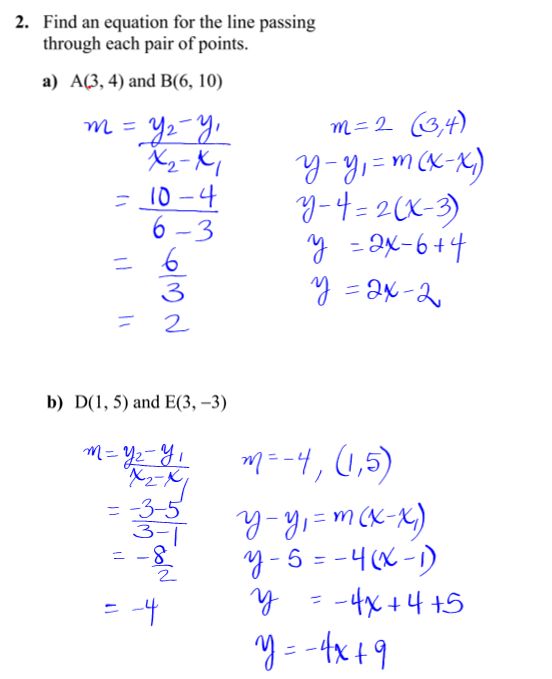 2. Find an equation for the line passing
through each pair of points.
a) A(3, 4) and B(6, 10)
m = y₂-y₁
x₂-x₁
= 10-4
6-3
= 6
3
= 2
m=2 (3,4)
y-y₁=m(x-x₁)
y-4=2(x-3)
y =2x-6+4
y =2x-2
b) D(1, 5) and E(3, –3)
m=y₂-y₁
x₂-x₁
= -3-5
3-1
= -8
2
= -4
m=-4, (1,5)
y-y₁=m(x-x₁)
y-5 =-4(x-1)
y = -4x+4+5
y=-4x+9